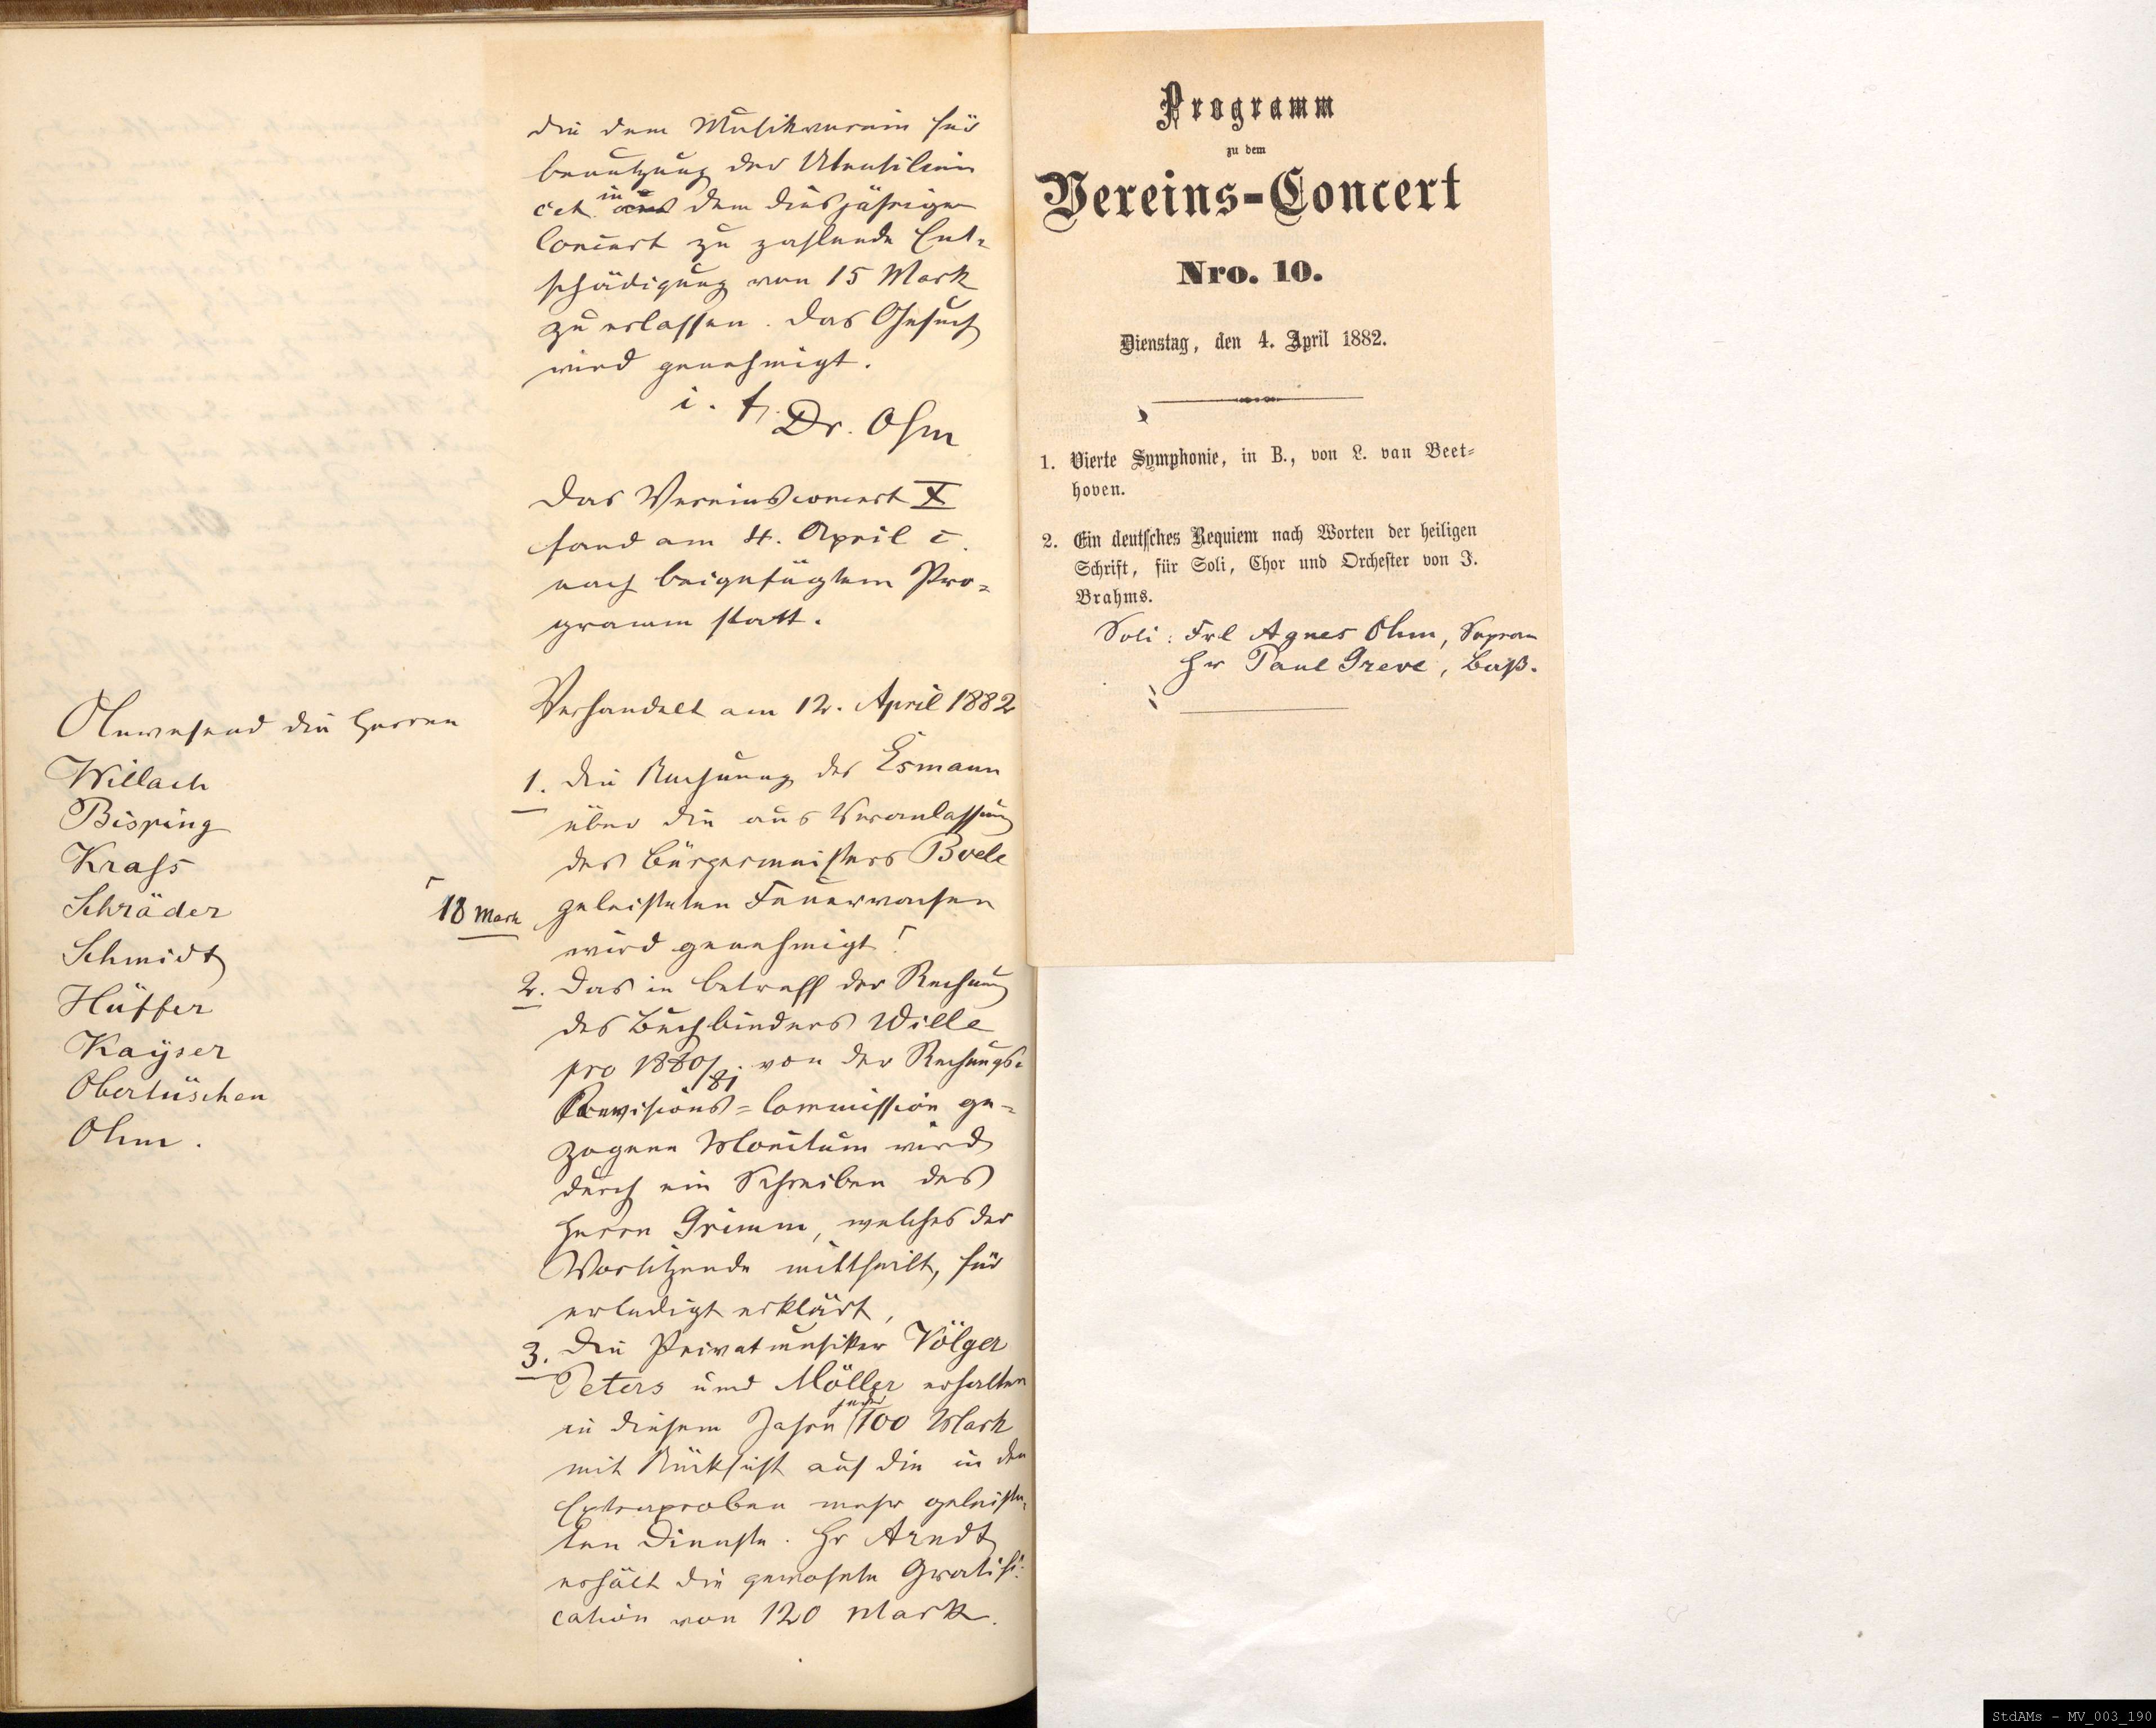 die dem Musikverein für
Benutzung der Utensilien
cet. in aus dem diesjährigen
Concert zu zahlende Ent-
schädigung von 15 Mark
zu erlassen. Das Gesuch
wird genehmigt.
i. f.
Dr. Ohm
Das Vereinsconcert X
fand am 4. April c.
nach beigefügtem Pro-
gramm statt.
Verhandelt am 12. April 1882
Anwesend die Herren
Willach
Bisping
Krass
Schräder
Schmidt
Hüffer
Kayser
Obertüschen
Ohm.
1. Die Rechnung des Esmann
über die aus Veranlassung
des Bürgermeisters Boele
geleisteten Feuerwachen
18 Mark
wird genehmigt
2. Das in betreff der Rechnung
des Buchbinders Wille
pro 1880/81 von der Rechnungs-
Revisions-Commission ge-
zogene Monitum wird
durch ein Schreiben des
Herrn Grimm, welches der
Vorsitzende mittheilt, für
erledigt erklärt,
3. Die Privatmusiker Völger
Peters und Möller erhalten
in diesem Jahre jeder 100 Mark
mit Rücksicht auf die in den
Extraproben mehr geleiste-
ten Dienste. Hr Arndt
erhält die gewohnte Gratifi-
cation von 120 Mark.
Programm
zu dem
Vereins-Concert
Nro. 10.
Dienstag, den 4. April 1882.
1. Vierte Symphonie, in B., von L. van Beet-
hoven.
2. Ein deutsches Requiem nach Worten der heiligen
Schrift, für Soli, Chor und Orchester von J.
Brahms.
Soli: Frl Agnes Ohm, Sopran
Hr Paul Greve, Baß.
StdAMs - MV_003_190